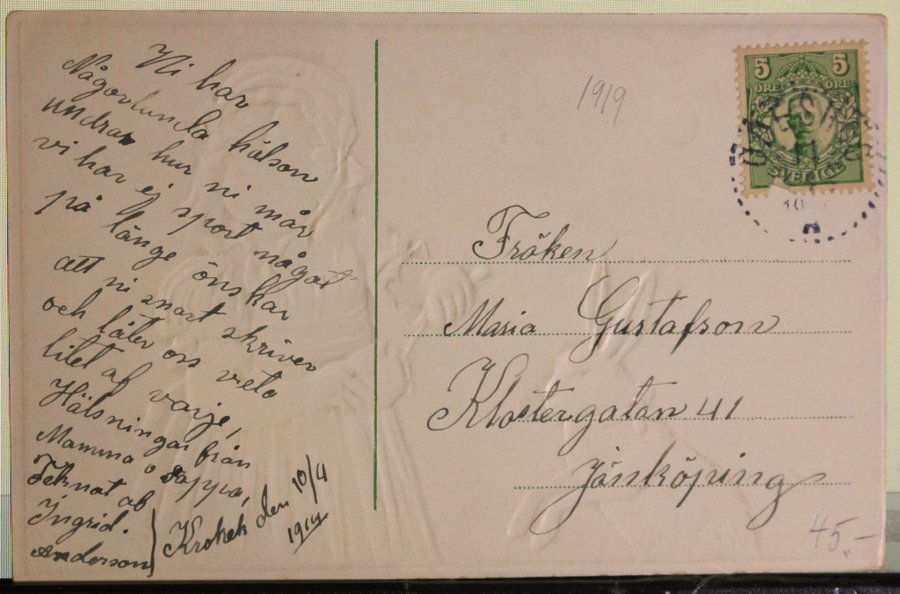 Vi har
Någorlunda hälson
undrar hur ni mår
vi har ej sport något
på länge önskar
att ni snart skriver
och låter oss veta
litet af varje,
Hälsningar från
Mamma o Pappa,
Teknat af
Ingrid.
Anderson
Krokek den 10/4
1919
1919
5 5
ÖRE ÖRE
SVERIGE
Fröken
Maria Gustafson
Klostergatan 41
Jönköping
45.-